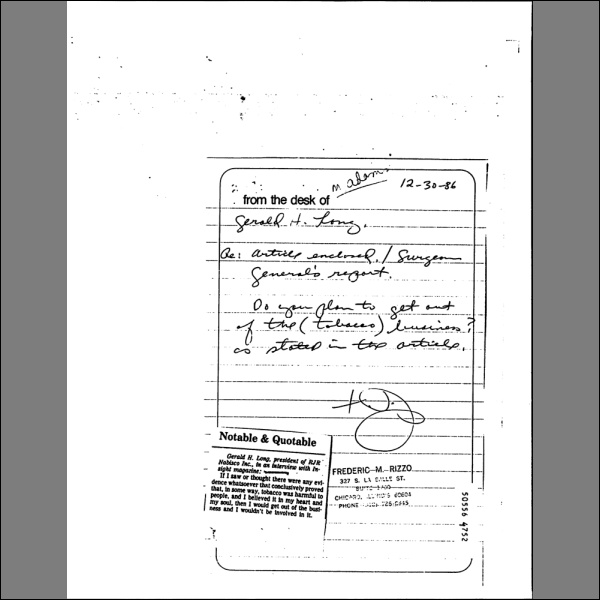 M Adams
12-30-86
from the desk of
Gerald H. Long,
Re: article enclosed./Surgeon
General's report.
Do you plan to get out
of the (tobacco) business?
as stated in the article.
Notable & Quotable
Gerald H. Long, president of RJR
Nabisco Inc., in an interview with In-
sight magazine:
If I saw or thought there were any evi-
dence whatsoever that conclusively proved
that, in some way, tobacco was harmful to
people, and I believed it in my heart and
my soul, then I would get out of the busi-
ness and I wouldn't be involved in it.
FREDERIC M. RIZZO
327 S. LA SALLE ST.
CHICAGO, ILLINOIS 60604
PHONE
50556 4752